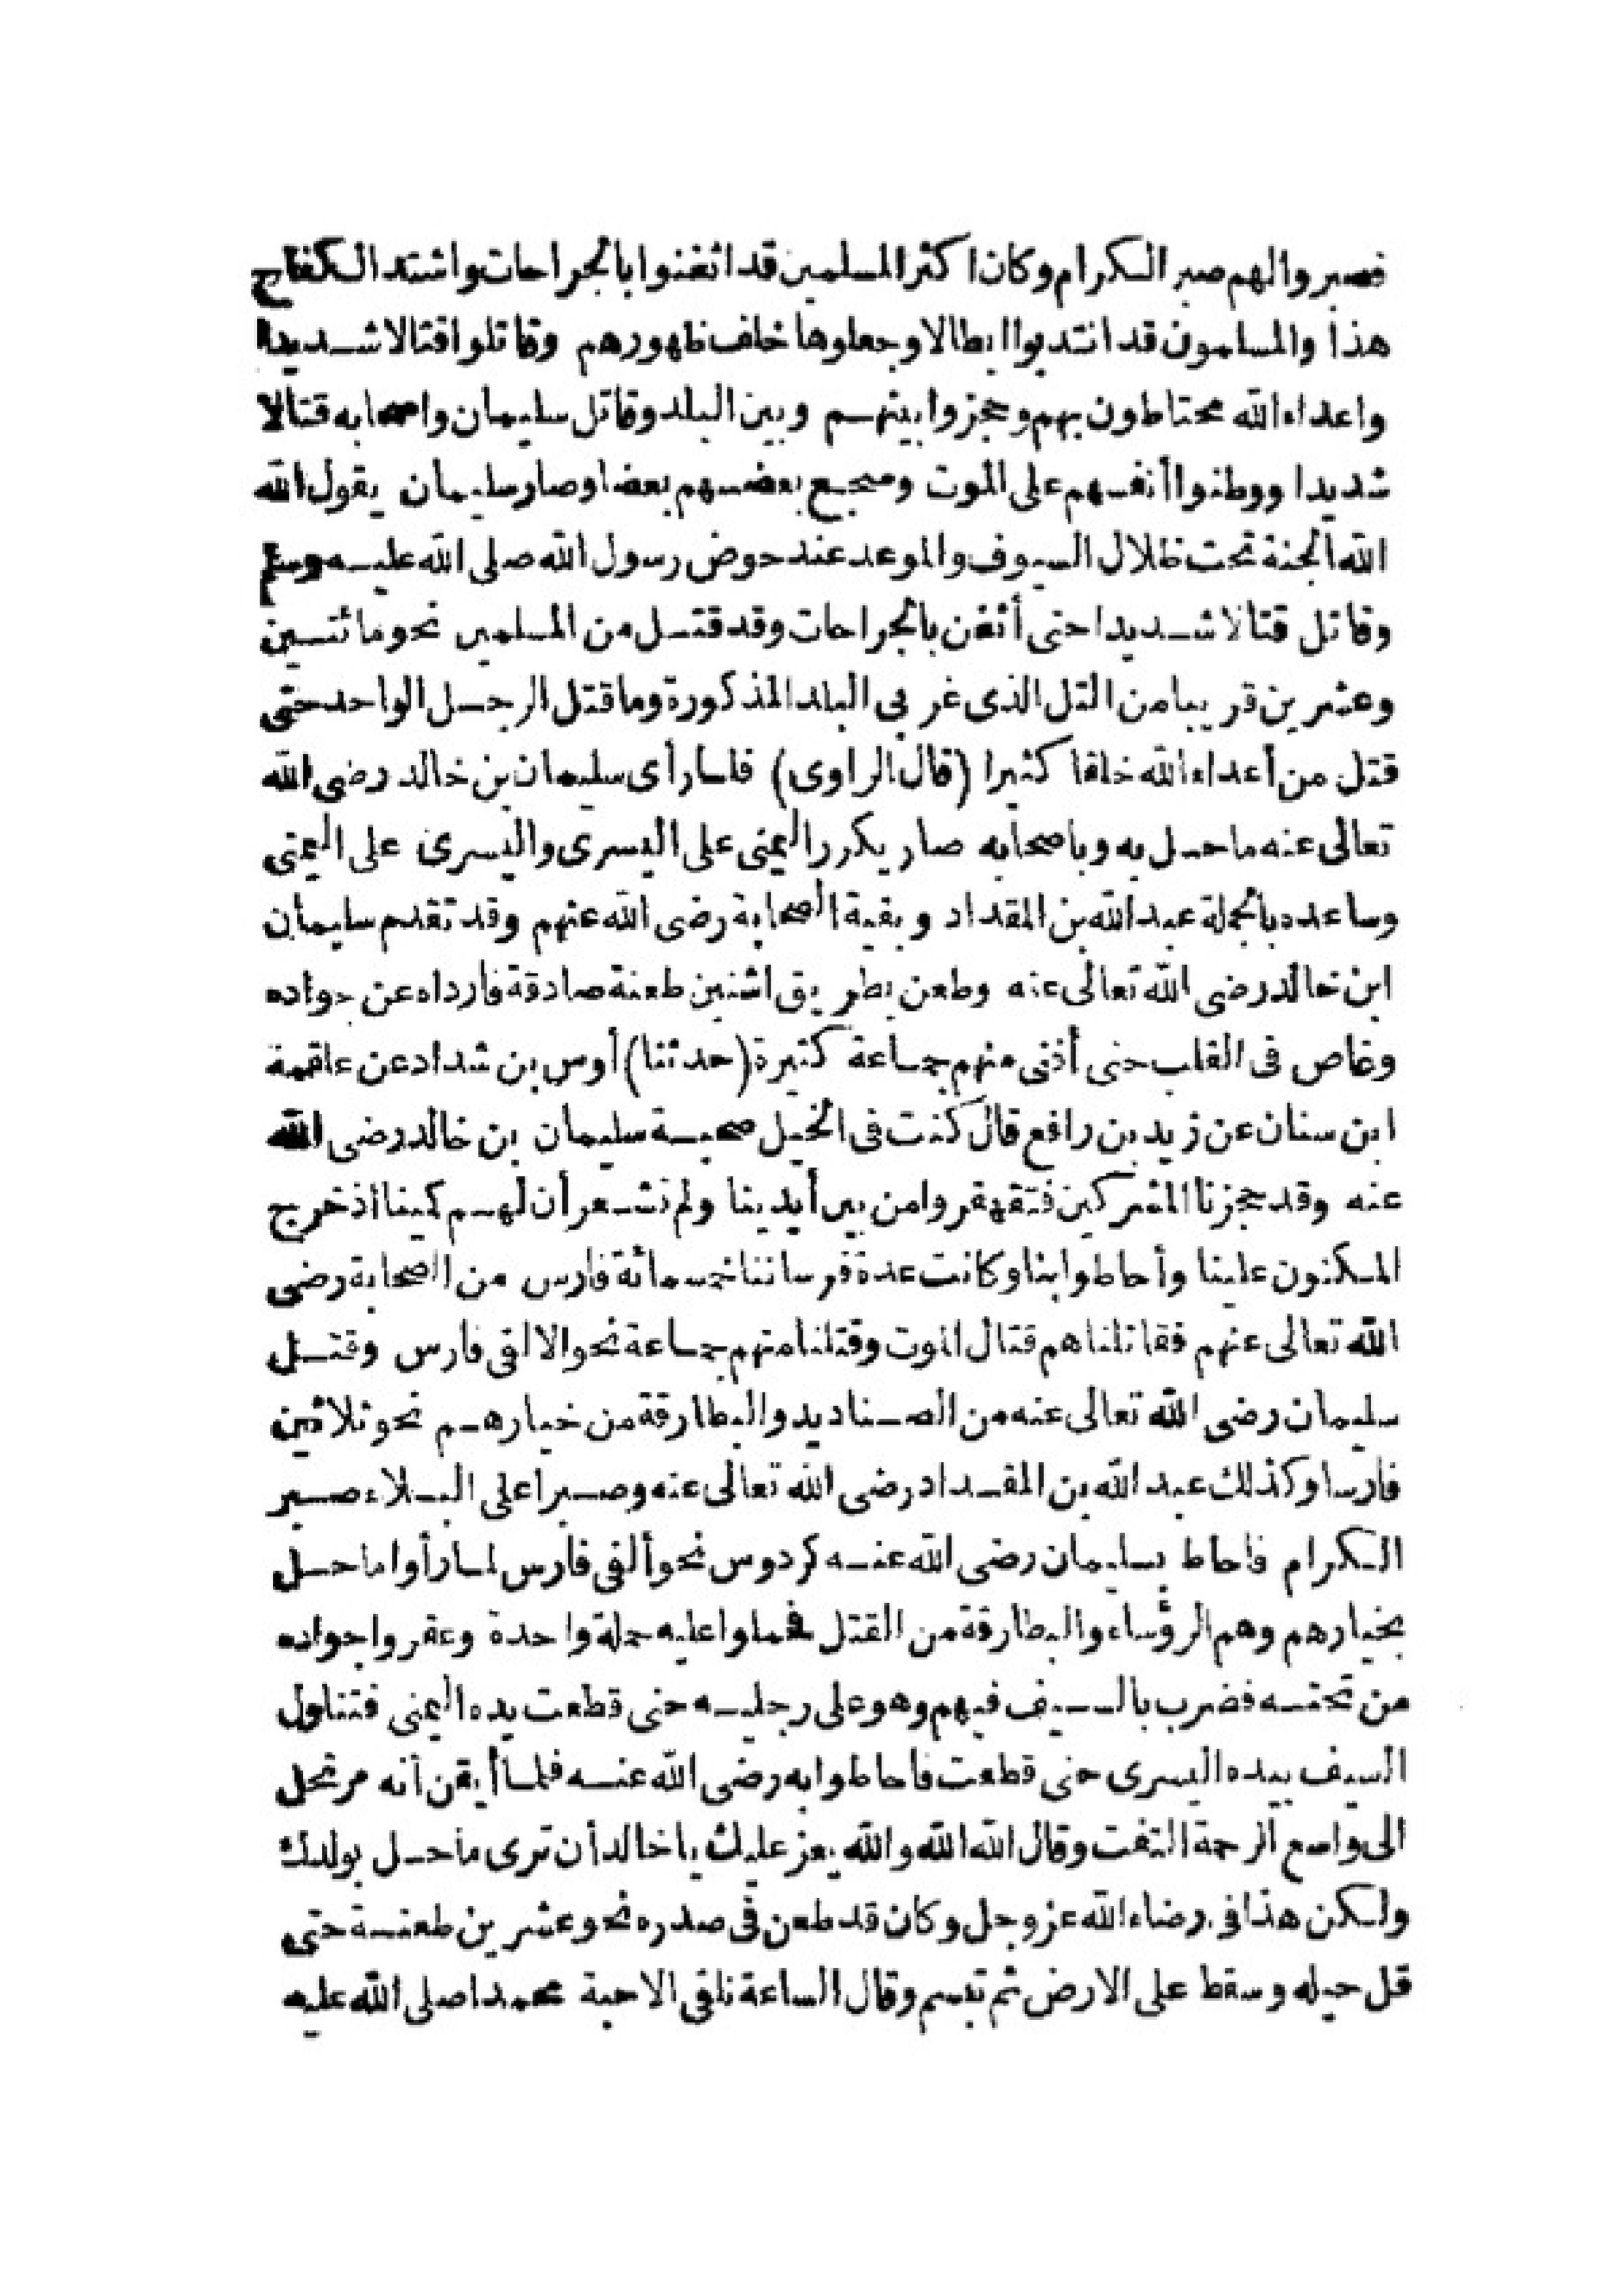 فصبروا لهم صبر الكرام وكان اكثر المسلمين قد اثخنوا بالجراحات واشتد الكفاح
هذا والمسلمون قد انتدبوا ابطالا وجعلوها خلف ظهورهم وقاتلوا قتالا شديدا
واعداء الله محتاطون بهم وحجزوا بينهم وبين البلد وقاتل سليمان واصحابه قتالا
شديدا ووطنوا أنفسهم على الموت وصجع بعضهم بعضا وصار سليمان يقول الله
الله الجنة تحت ظلال السيوف والموعد عند حوض رسول الله صلى الله عليه وسلم
وقاتل قتالا شديدا حتى أثخن بالجراحات وقد قتل من المسلمين نحو مائتين
وعشرين قريبا من التل الذى غربى البلد المذكورة وما قتل الرجل الواحد حتى
قتل من أعداء الله خلقا كثيرا (قال الراوى) فلما رأى سليمان بن خالد رضى الله
تعالى عنه ما حل به وباصحابه صار يكرر اليمنى على اليسرى واليسرى على اليمنى
وساعده بالجملة عبد الله بن المقداد وبقية الصحابة رضى الله عنهم وقد تقدم سليمان
ابن خالد رضى الله تعالى عنه وطعن بطريق اشنين طعنة صادقة فارداه عن جواده
وغاص فى القلب حتى أفنى منهم جماعة كثيرة (حدثنا) أوس بن شداد عن علقمة
ابن سنان عن زيد بن رافع قال كنت فى الخيل صحبة سليمان بن خالد رضى الله
عنه وقد حجزنا المشركين فتقهقروا من بين أيدينا ولم نشعر أن لهم كمينا اذ خرج
المكنون علينا وأحاطوا بنا وكانت عدة فرساننا خمسمائة فارس من الصحابة رضى
الله تعالى عنهم فقاتلناهم قتال الموت وقتلنا منهم جماعة نحو الالفى فارس وقتل
سليمان رضى الله تعالى عنه من الصناديد والبطارقة من خيارهم نحو ثلاثين
فارسا وكذلك عبد الله بن المقداد رضى الله تعالى عنه وصبرا على البلاء صبر
الكرام فاحاط بسليمان رضى الله عنه كردوس نحو ألفى فارس لما رأوا ما حل
بخيارهم وهم الرؤساء والبطارقة من القتل فحملوا عليه حملة واحدة وعقروا جواده
من تحته فضرب بالسيف فيهم وهو على رجليه حتى قطعت يده اليمنى فتناول
السيف بيده اليسرى حتى قطعت فاحاطوا به رضى الله عنه فلما أيقن أنه مرتحل
الى واسع الرحمة التفت وقال الله الله والله يعز عليك يا خالد أن ترى ما حل بولدك
ولكن هذا فى رضاء الله عز وجل وكان قد طعن فى صدره نحو عشرين طعنة حتى
قل حيله وسقط على الارض ثم تبسم وقال الساعة نلقى الاحبة محمدا صلى الله عليه